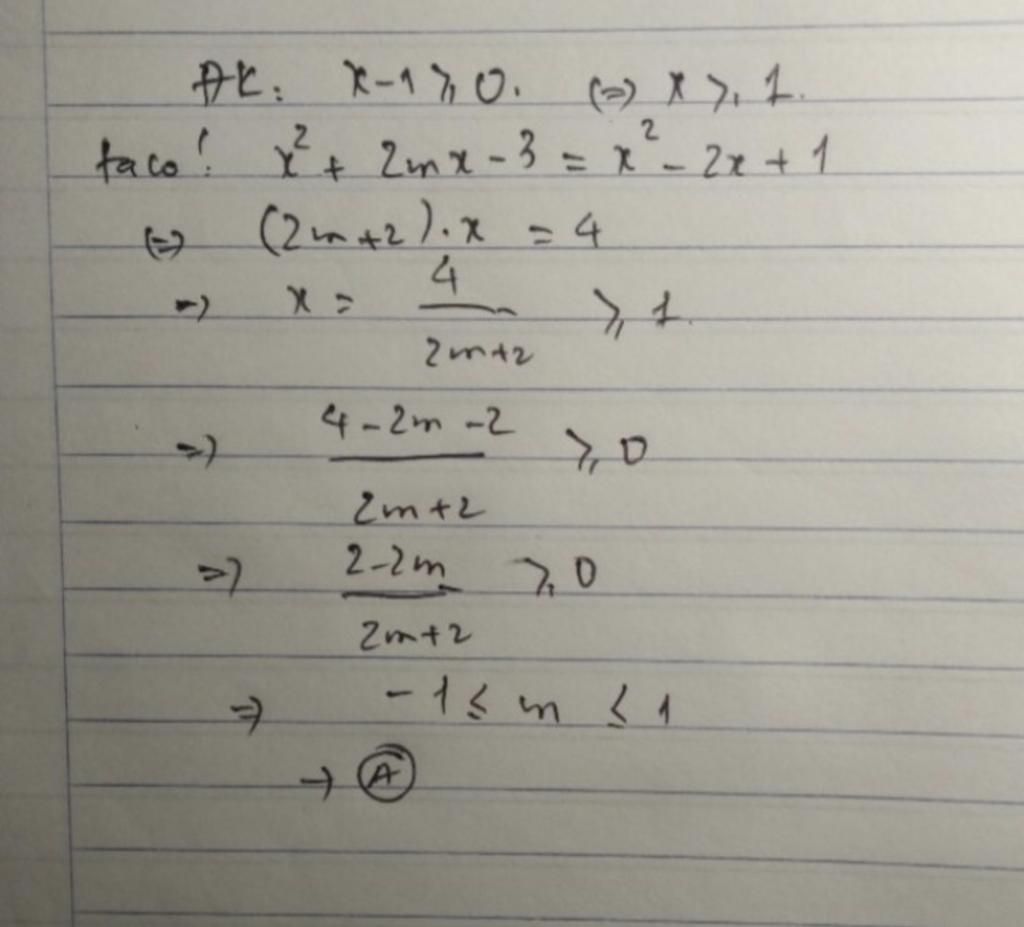 ĐK: x-1 ⩾ 0. (=) x ⩾ 1.
ta có: x² + 2mx - 3 = x² - 2x + 1
(=) (2m+2).x = 4
=) x = 4/(2m+2) ⩾ 1.
=) (4-2m-2)/(2m+2) ⩾ 0
=) (2-2m)/(2m+2) ⩾ 0
=) -1 ≤ m ≤ 1
→ Ⓐ